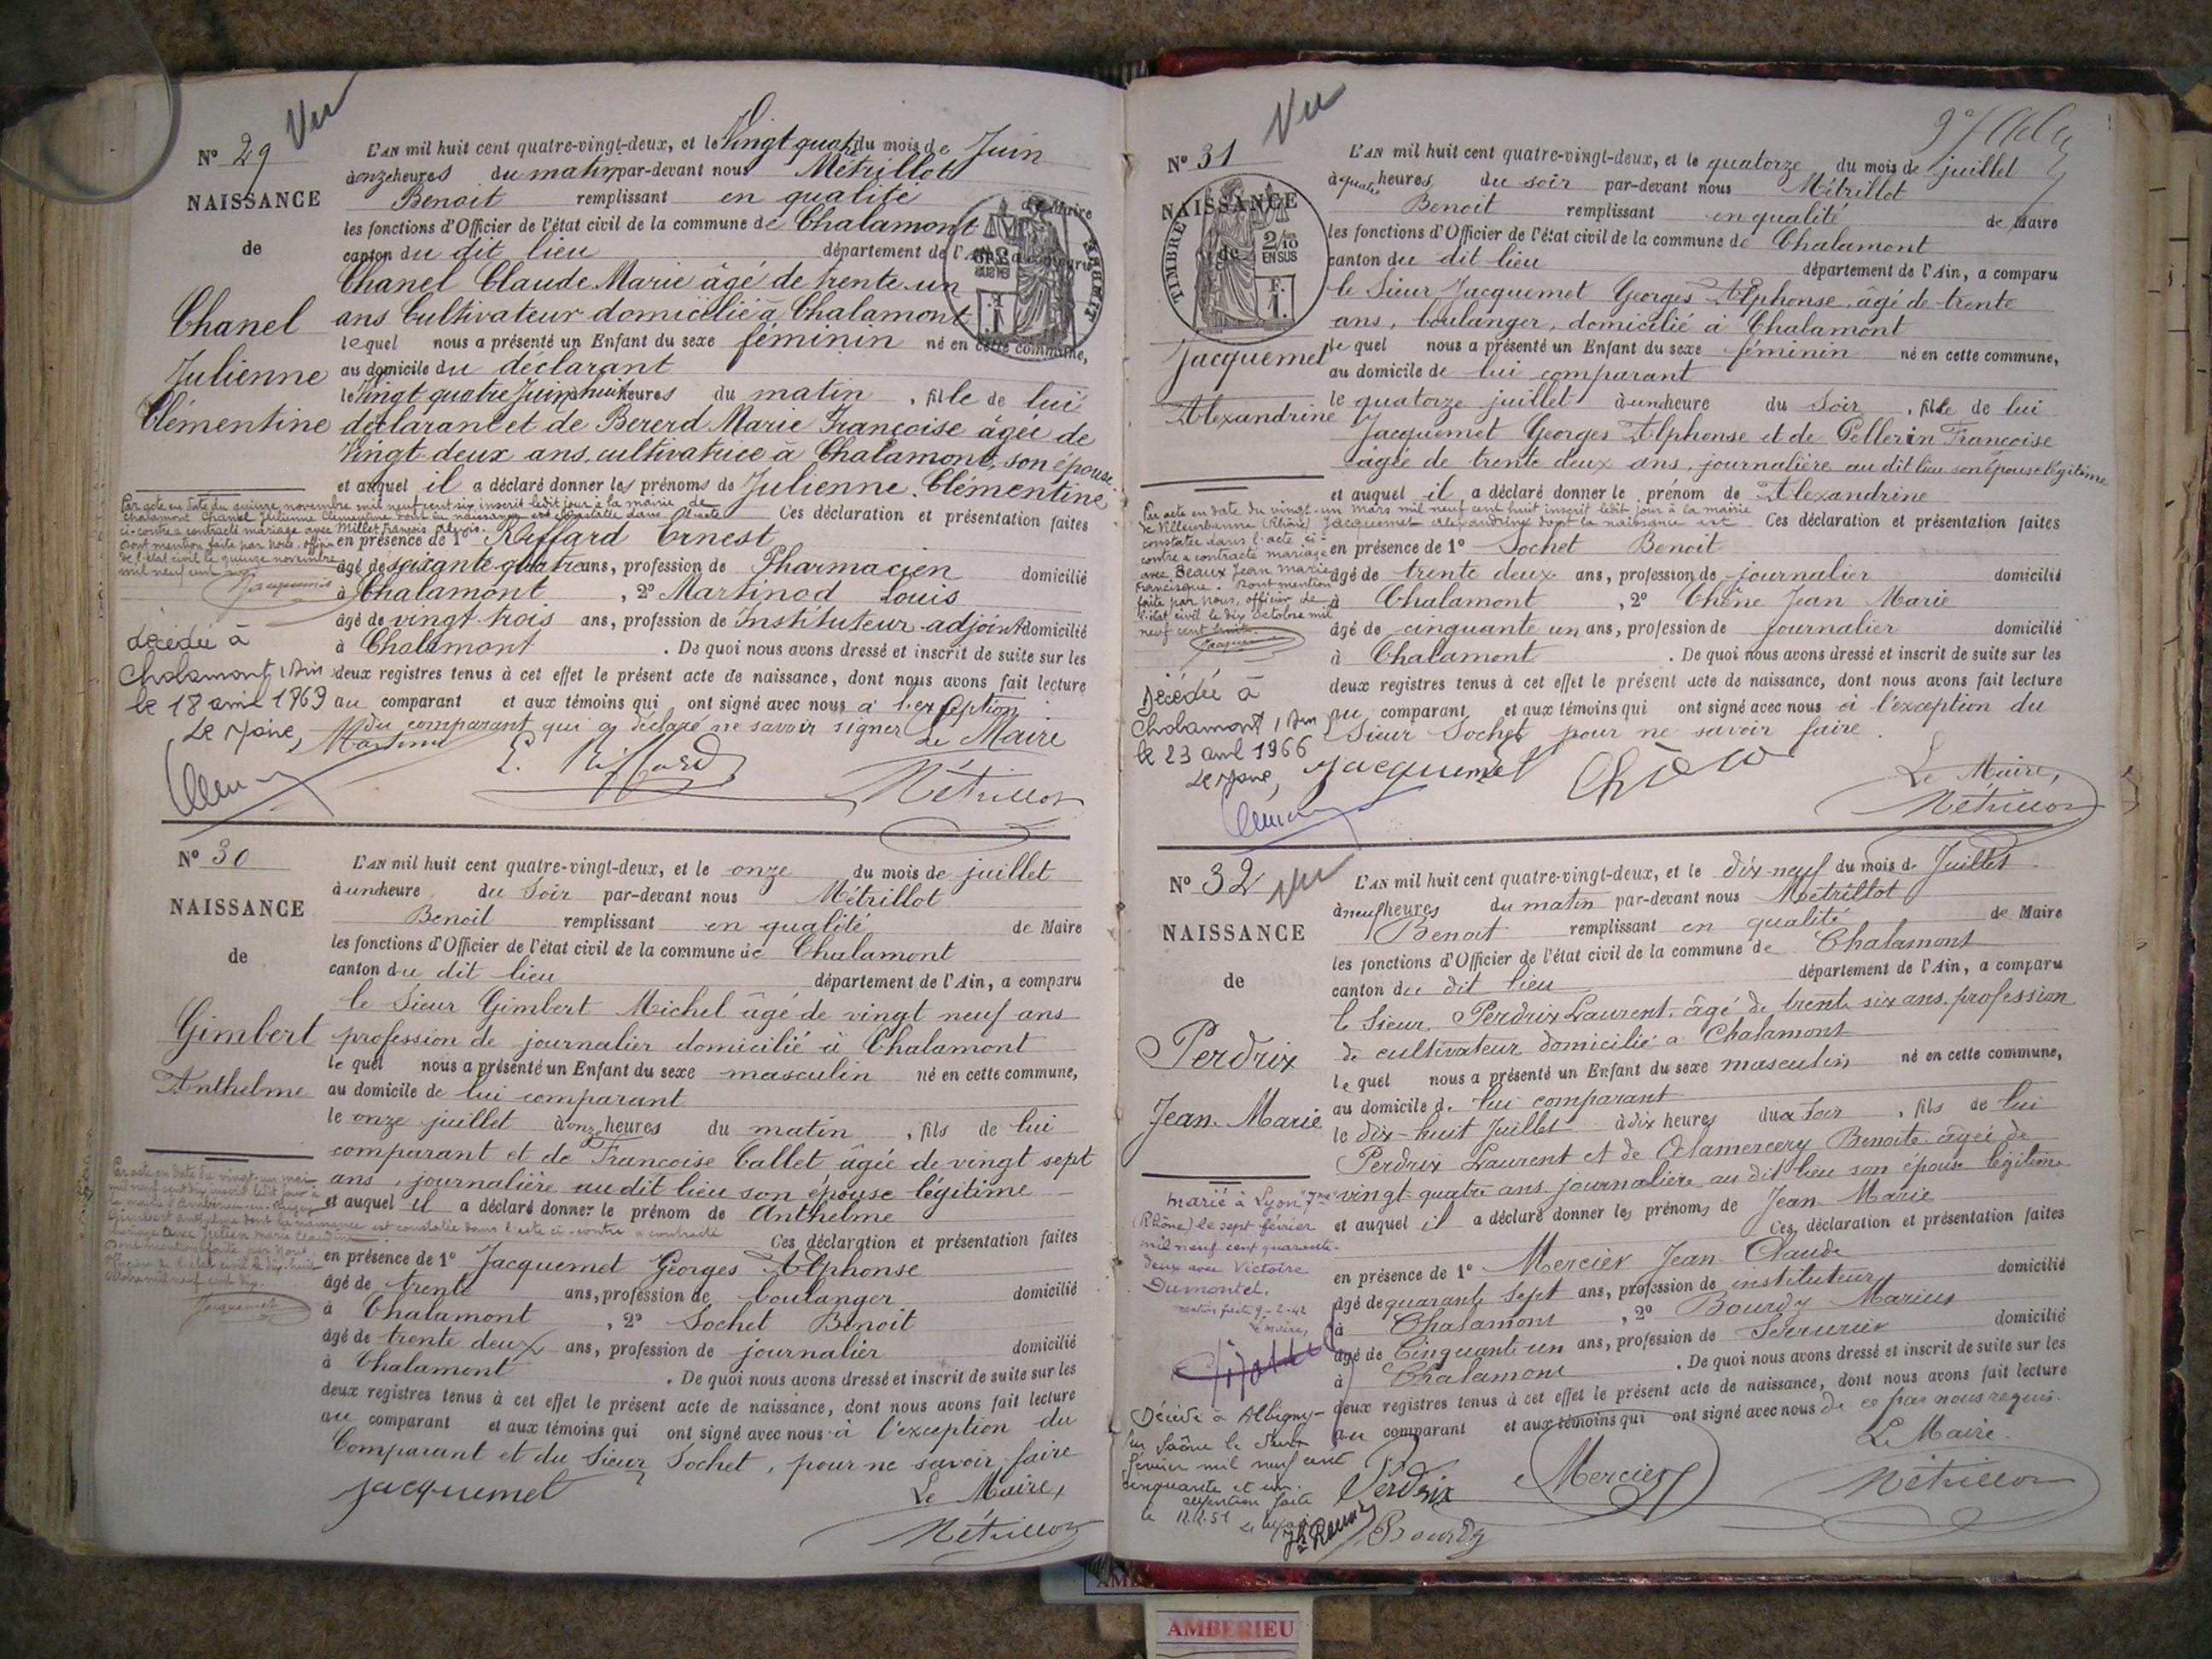 Vu
N° 29
L'AN mil huit cent quatre-vingt-deux, et le Vingt quatre du mois de Juin
à onze heures du matin par-devant nous Métrillot
NAISSANCE
Benoit remplissant en qualité de Maire
les fonctions d'Officier de l'état civil de la commune de Chalamont
de
canton du dit lieu département de l'Ain, a comparu
Chanel Claude Marie âgé de trente un
Chanel
ans Cultivateur domicilié à Chalamont
lequel nous a présenté un Enfant du sexe féminin né en cette commune,
Julienne
au domicile du déclarant
le Vingt quatre Juin à huit heures du matin, fille de lui
Clémentine
déclarant et de Bererd Marie Françoise âgée de
Vingt-deux ans, cultivatrice à Chalamont, son épouse
et auquel il a déclaré donner les prénoms de Julienne Clémentine
Ces déclaration et présentation faites
Par acte en date du quinze novembre mil neuf cent six inscrit ledit jour à la mairie de
Chalamont Chanel Julienne Clémentine dont la naissance est constatée dans l'acte
ci-contre a contracté mariage avec Millet François Alexis.
Dont mention faite par nous, officier
de l'état civil le quinze novembre
mil neuf cent six
Jacquemet
en présence de 1° Riffard Ernest
âgé de soixante quatre ans, profession de Pharmacien domicilié
à Chalamont, 2° Martinod Louis
âgé de vingt-trois ans, profession de Instituteur-adjoint domicilié
à Chalamont. De quoi nous avons dressé et inscrit de suite sur les
deux registres tenus à cet effet le présent acte de naissance, dont nous avons fait lecture
au comparant et aux témoins qui ont signé avec nous à l'exception
du comparant qui a déclaré ne savoir signer
Le Maire
décédée à
Chalamont, Ain
le 18 avril 1969
Le Maire,
E. Riffard
Métrillot
N° 30
L'AN mil huit cent quatre-vingt-deux, et le onze du mois de juillet
à une heure du Soir par-devant nous Métrillot
NAISSANCE
Benoit remplissant en qualité de Maire
les fonctions d'Officier de l'état civil de la commune de Chalamont
de
canton du dit lieu département de l'Ain, a comparu
le Sieur Gimbert Michel âgé de vingt neuf ans
Gimbert
profession de journalier domicilié à Chalamont
le quel nous a présenté un Enfant du sexe masculin né en cette commune,
Anthelme
au domicile de lui comparant
le onze juillet à onze heures du matin, fils de lui
comparant et de Francoise Callet âgée de vingt sept
ans, journalière audit lieu son épouse légitime
et auquel il a déclaré donner le prénom de Anthelme
Ces déclaration et présentation faites
Par acte en date du vingt-un mai
mil neuf cent dix inscrit ledit jour à
la mairie d'Ambérieu-en-Bugey
Gimbert Anthelme dont la naissance est constatée dans l'acte ci-contre a contracté
mariage avec Julien Marie Claudine
Dont mention faite par nous
officier de l'état civil le dix-huit
octobre mil neuf cent dix.
Jacquemet
en présence de 1° Jacquemet Georges Alphonse
âgé de trente ans, profession de boulanger domicilié
à Chalamont, 2° Sochet Benoit
âgé de trente deux ans, profession de journalier domicilié
à Chalamont. De quoi nous avons dressé et inscrit de suite sur les
deux registres tenus à cet effet le présent acte de naissance, dont nous avons fait lecture
au comparant et aux témoins qui ont signé avec nous à l'exception du
Comparant et du Sieur Sochet, pour ne savoir faire
Jacquemet
Le Maire,
Métrillot
Vu
N° 31
L'AN mil huit cent quatre-vingt-deux, et le quatorze du mois de juillet
à quatre heures du soir par-devant nous Métrillot
NAISSANCE
Benoit remplissant en qualité de Maire
TIMBRE
2/10
EN SUS
les fonctions d'Officier de l'état civil de la commune de Chalamont
de
canton du dit lieu département de l'Ain, a comparu
le Sieur Jacquemet Georges Alphonse, âgé de trente
ans, boulanger, domicilié à Chalamont
Jacquemet
le quel nous a présenté un Enfant du sexe féminin né en cette commune,
au domicile de lui comparant
Alexandrine
le quatorze juillet à une heure du Soir, fille de lui
Jacquemet Georges Alphonse et de Pellerin Francoise
âgée de trente deux ans, journalière au dit lieu son épouse légitime
et auquel il a déclaré donner le prénom de Alexandrine
Ces déclaration et présentation faites
Par acte en date du vingt-un mars mil neuf cent huit inscrit ledit jour à la mairie
de Villeurbanne (Rhône) Jacquemet Alexandrine dont la naissance est
constatée dans l'acte ci-
contre a contracté mariage
avec Beaux Jean Marie
Francisque. Dont mention
faite par nous, officier de
l'état civil le dix octobre mil
neuf cent huit.
Jacquemet
en présence de 1° Sochet Benoit
âgé de trente deux ans, profession de journalier domicilié
à Chalamont, 2° Chêne Jean Marie
âgé de cinquante un ans, profession de journalier domicilié
à Chalamont. De quoi nous avons dressé et inscrit de suite sur les
deux registres tenus à cet effet le présent acte de naissance, dont nous avons fait lecture
au comparant et aux témoins qui ont signé avec nous à l'exception du
Sieur Sochet pour ne savoir faire.
Décédée à
Chalamont, Ain
le 23 avril 1966
Le Maire,
Jacquemet
Le Maire,
Métrillot
N° 32
Vu
L'AN mil huit cent quatre-vingt-deux, et le dix-neuf du mois de Juillet
à neuf heures du matin par-devant nous Métrillot
NAISSANCE
Benoit remplissant en qualité de Maire
les fonctions d'Officier de l'état civil de la commune de Chalamont
de
canton du dit lieu département de l'Ain, a comparu
le Sieur Perdrix Laurent, âgé de trente six ans, profession
Perdrix
de cultivateur domicilié à Chalamont
le quel nous a présenté un Enfant du sexe masculin né en cette commune,
Jean-Marie
au domicile de lui comparant
le dix-huit Juillet à dix heures du Soir, fils de lui
Perdrix Laurent et de Alamercery Benoite âgée de
vingt-quatre ans journalière au dit lieu son épouse légitime
et auquel il a déclaré donner les prénoms de Jean-Marie
Ces déclaration et présentation faites
marié à Lyon 7me
(Rhône) le sept février
mil neuf cent quarante-
deux avec Victoire
Dumontet.
mention faite 9-2-42
en présence de 1° Mercier Jean-Claude
âgé de quarante sept ans, profession de instituteur domicilié
à Chalamont, 2° Bourdy Marius
âgé de Cinquante un ans, profession de Serrurier domicilié
à Chalamont. De quoi nous avons dressé et inscrit de suite sur les
deux registres tenus à cet effet le présent acte de naissance, dont nous avons fait lecture
au comparant et aux témoins qui ont signé avec nous de ce par nous requis.
Décédé à Albigny-
sur Saône le
février mil neuf cent
cinquante et un.
mention faite
le 12.2.51
Le Maire.
Perdrix
Mercier
Métrillot
Bourdy
AMBERIEU